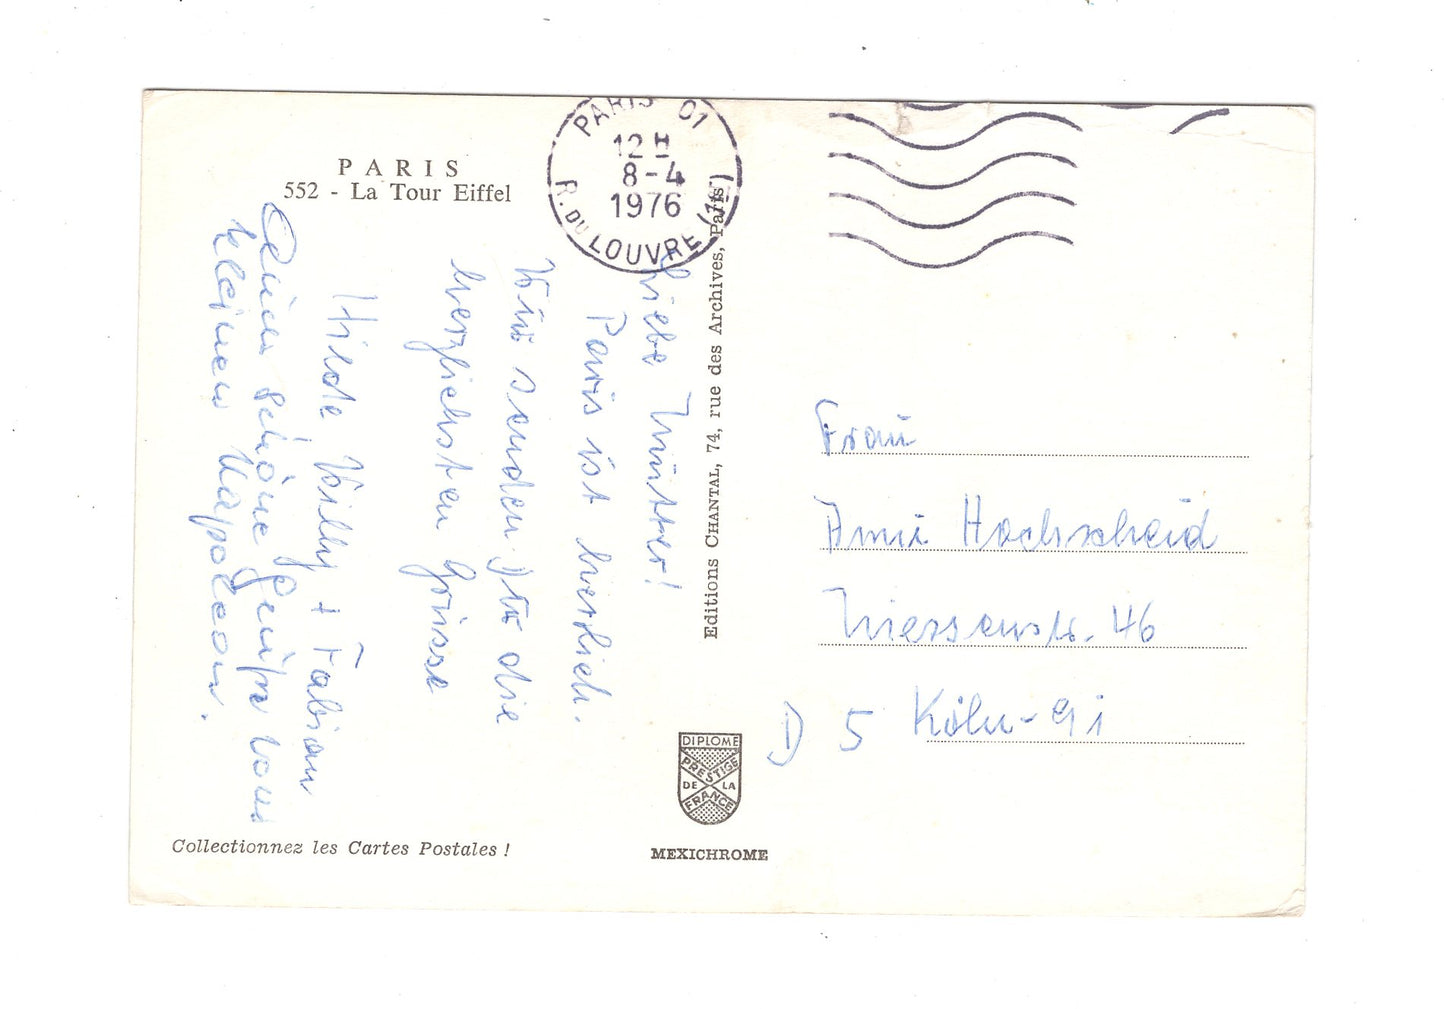 PARIS
552 - La Tour Eiffel
PARIS 01
12 H
8-4
1976
R. DU LOUVRE (1er)
Liebe Mutter!
Paris ist herrlich.
Wir senden Dir die
herzlichsten Grüsse
Hilde Willy + Fabian
Einen schönen Gruß von
kleinen Napoleon.
Editions CHANTAL, 74, rue des Archives, Paris
Frau
Anni Hochscheid
Niessenstr. 46
D 5 Köln-91
DIPLOME
PRESTIGE
DE LA
FRANCE
Collectionnez les Cartes Postales !
MEXICHROME